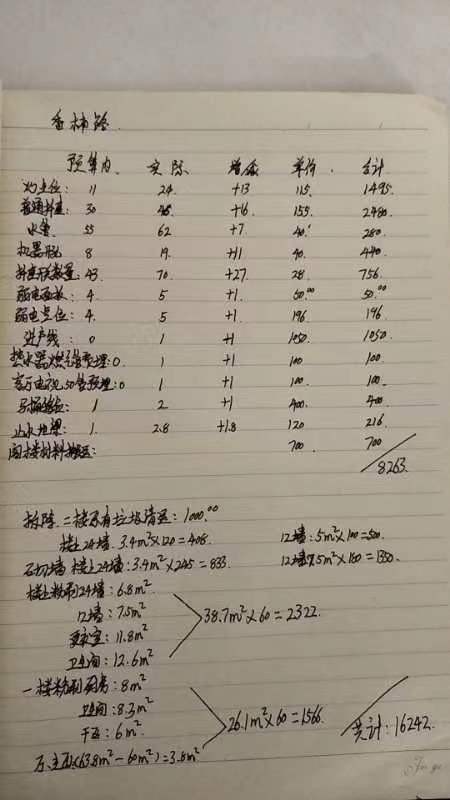 香柿铭
预算内 实际 增减 单价 合计
灯点位: 11 24 +13 115. 1495.
普通插座: 30 46 +16. 155. 2480.
水管 55 62 +7 40. 280.
机器脱 8 19. +11 40. 440.
插座底数量: 43 70 +27 28. 756.
弱电面板: 4. 5 +1. 50.00 50.00
弱电点位: 4. 5 +1. 196 196
进户线: 0 1 +1 1050 1050
热水器燃气管预埋: 0. 1 +1 100 100
客厅电视50管预埋: 0 1 +1 100 100.
马桶移位: 1 2 +1 400. 400
止水地梁: 1. 2.8 +1.8 120 216.
阁楼材料搬运: 700 700
8263.
拆除 二楼原有垃圾清运: 1000.00
楼上24墙. 3.4m²×120=408. 12墙: 5m²×100=500.
石切墙 楼上24墙: 3.4m²×245=833 12墙 7.5m²×180=1350.
楼上粉刷24墙: 6.8m²
12墙: 7.5m²
更衣室: 11.8m²
卫生间: 12.6m²
38.7m²×60=2322.
一楼粉刷厨房: 8m²
卫生间: 8.3m²
干区: 6m²
(63.8m²-60m²)=3.8m²
26.1m²×60=1566.
共计: 16242.